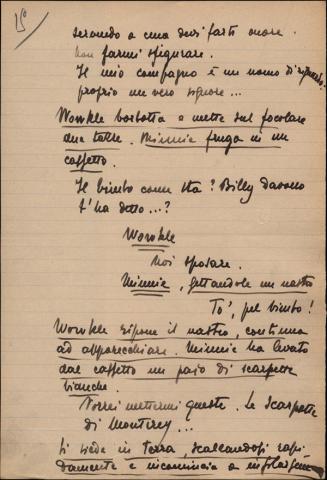 15
serondo a cena devi farti onore.
Non farmi sfigurare.
Il mio compagno è un uomo di riguardo.
proprio un vero signore...
Wowkle borbotta e mette sul focolare
due tazze. Minnie fruga in un
cassetto.
Il bimbo come sta? Billy davvero
t'ha detto...?
Wowkle
Noi sposare.
Minnie, gettandole un nastro
To', pel bimbo!
Wowkle ripone il nastro, continua
ad apparecchiare. Minnie ha levato
dal cassetto un paio di scarpette
bianche.
Vorrei mettermi queste. Le scarpette
di Monterey...
Si siede in terra, scalzandosi rapi
damente e incomincia a infilarsene